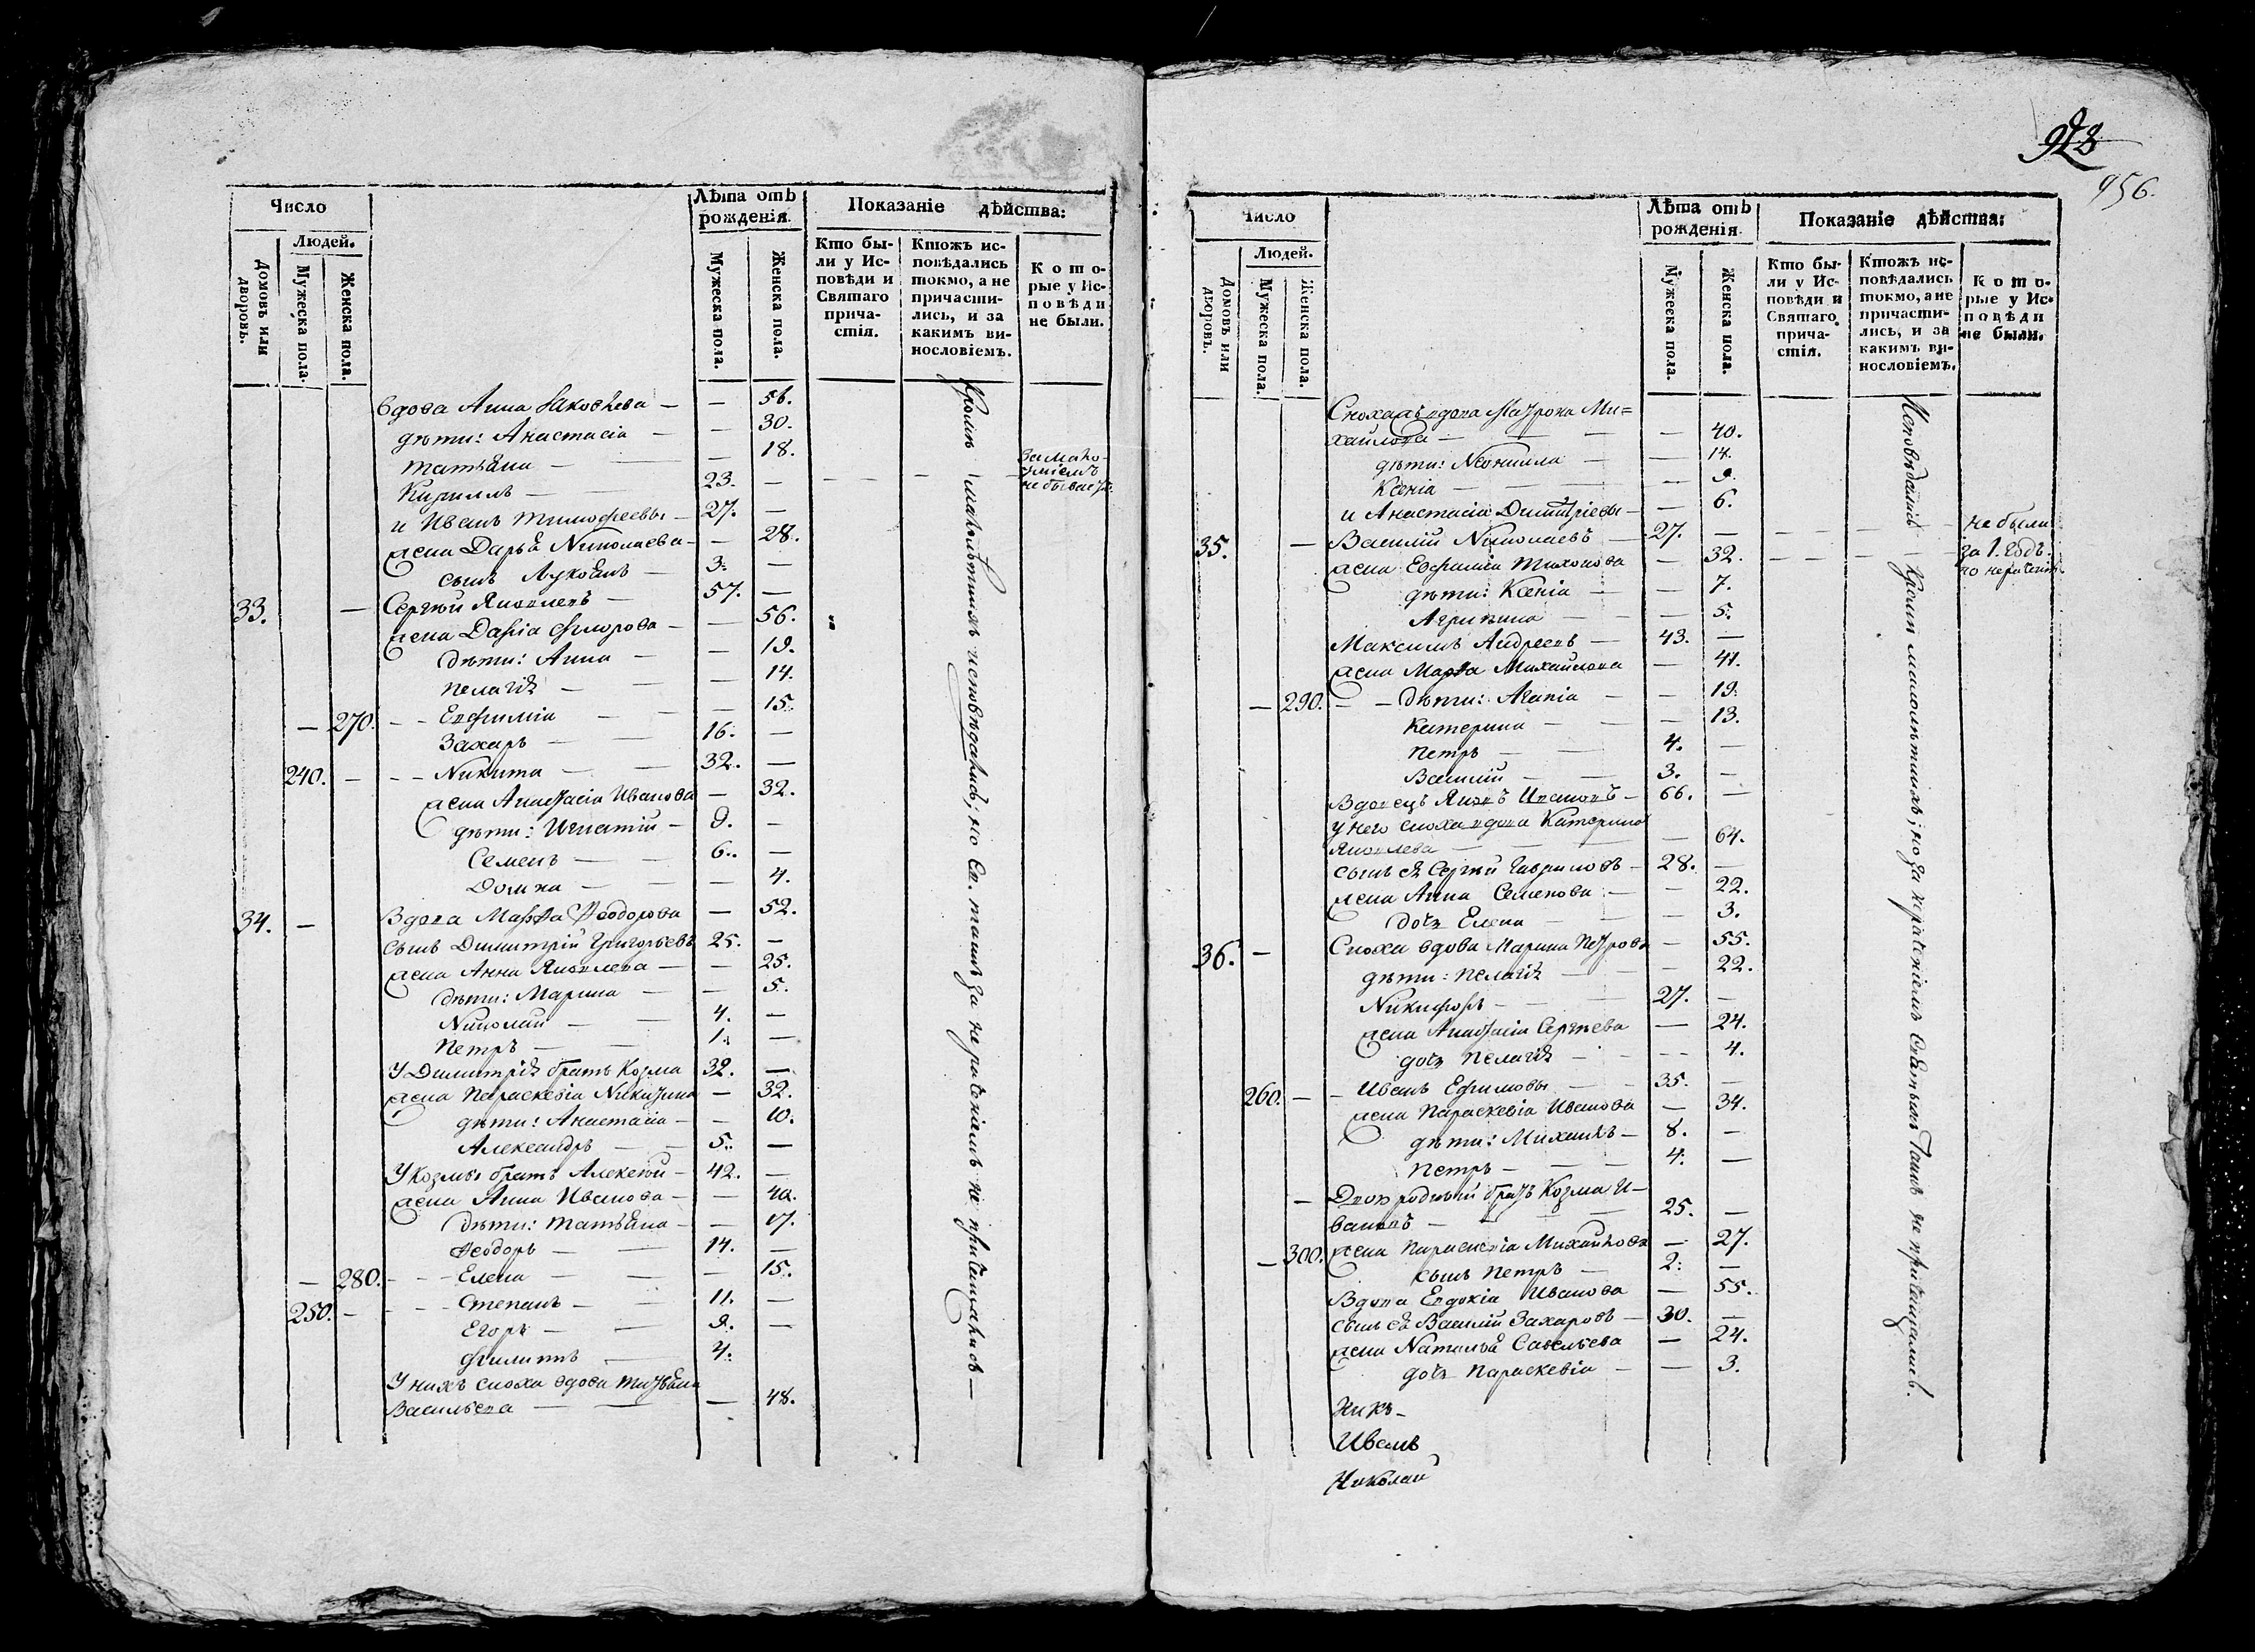 Число
Людей.
Домовъ или дворовъ.
Мужеска пола.
Женска пола.
Лѣта отъ рожденія.
Мужеска пола.
Женска пола.
Показаніе дѣйства:
Кто бы-
ли у Ис-
повѣди и
Святаго
прича-
стія.
Ктожъ ис-
повѣдались
токмо, а не
причасти-
лись, и за
какимъ ви-
нословіемъ.
К о т о-
рые у Ис-
п о в ѣ д и
не были.
вдова Анна — — 56.
дѣти: Анастасія — — 30.
Татьяна — — 18.
Кириллъ — 23. —
и Иванъ Тимофеевы — 27. —
жена Дарья Николаева — — 28.
сынъ Лукьянъ — 3. —
33. — Сергѣй Яковлевъ — 57. —
жена Дарія — — 56.
дѣти: Анна — — 19.
Пелагія — — 14.
— 270. — Евфимія — — 15.
Захаръ — 16. —
240. — Никита — 32. —
жена Анастасія Иванова — 32.
дѣти: Игнатій — 9. —
Семенъ — 6. —
Домна — — 4.
34. — Вдова Марѳа Ѳеодорова — 52.
сынъ Димитрій Григорьевъ 25. —
жена Анна Яковлева — — 25.
дѣти: Марина — — 5.
Николай — 4. —
Петръ — 1. —
У Димитрія братъ Козма 32. —
жена Параскевія Никитина — 32.
дѣти: Анастасія — — 10.
Александръ — 5. —
У Козмы братъ Алексѣй — 42. —
жена Анна Иванова — — 40.
дѣти: Татьяна — — 17.
Ѳеодоръ — 14. —
— 280. — Елена — — 15.
250. — Степанъ — 11. —
Егоръ — 9. —
Филиппъ — 4.
У нихъ сноха вдова Татьяна
Васильева — — 48.
Кромѣ малолѣтнихъ исповѣдались, но Св. таинъ за нераченіемъ не причащались —
не бываетъ.
928
956.
Число
Людей.
Домовъ или дворовъ.
Мужеска пола.
Женска пола.
Лѣта отъ рожденія.
Мужеска пола.
Женска пола.
Показаніе дѣйства:
Кто бы-
ли у Ис-
повѣди и
Святаго
прича-
стія.
Ктожъ ис-
повѣдались
токмо, а не
причасти-
лись, и за
какимъ ви-
нословіемъ.
К о т о-
рые у Ис-
п о в ѣ д и
не были.
вдова Матрона Ми=
хайлова — — 40.
дѣти: Неонилла — — 14.
Ксенія — — 9.
и Анастасія Димитріевы — — 6.
35. — Василій Николаевъ — 27. —
жена Евфимія Тихонова — 32.
дѣти: Ксенія — — 7.
Агрипина — — 5.
Максимъ Андреевъ — 43. —
жена Марѳа Михайлова — 41.
— 290. — дѣти: Агапія — — 19.
Катерина — — 13.
Петръ — 4. —
Василій — 3. —
Вдовецъ Яковъ Ивановъ — 66. —
У него сноха вдова Катерина
Яковлева — — 64.
сынъ ея Сергѣй Гавриловъ — 28. —
жена Анна Семенова — — 22.
дочь Елена — — 3.
36. — Сноха вдова Марина Петрова — 55.
дѣти: Пелагія — — 22.
Никифоръ — 27. —
жена Анастасія Сергѣева — 24.
дочь Пелагія — — 4.
260. — Иванъ Ефимовы — 35. —
жена Параскевія Иванова — 34.
дѣти: Михаилъ — 8. —
Петръ — 4. —
— Двоюродный братъ Козма И-
вановъ — 25. —
— 300. жена Параскевія Михайлова — 27.
сынъ Петръ — 2. —
Вдова Евдокія Иванова — 55.
сынъ ея Василій Захаровъ — 30. —
жена Наталья Савельева — 24.
дочь Параскевія — — 3.
Иванъ
Николай
Исповѣдались кромѣ малолѣтнихъ, но за нераченіемъ Святыхъ Таинъ не причащались.
не были
за 1. годъ.
по нераченію.